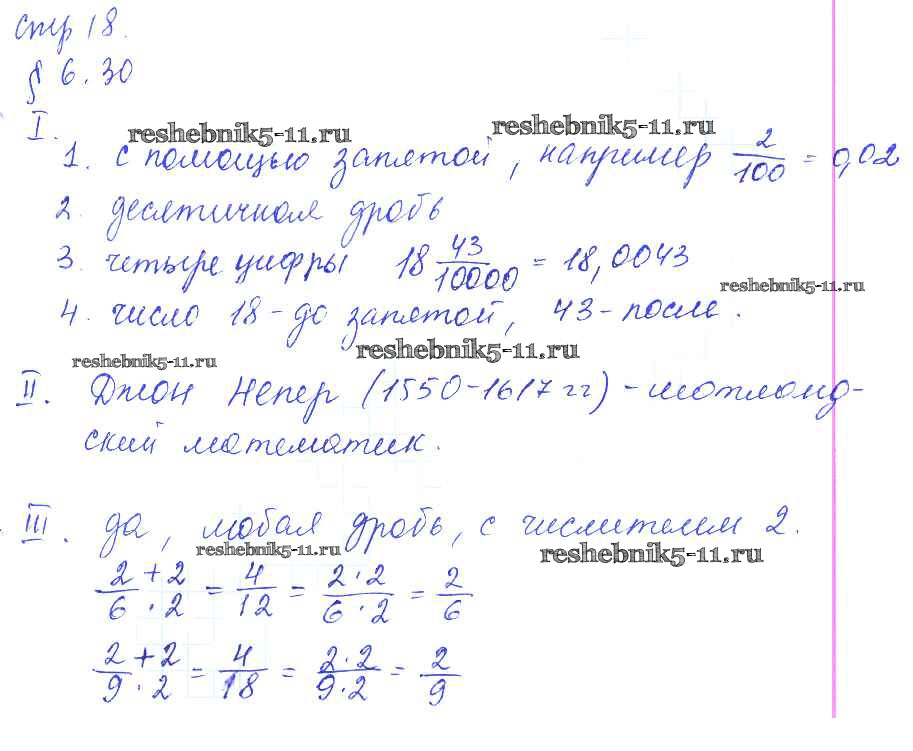 стр 18.
§ 6.30
I.
reshebnik5-11.ru reshebnik5-11.ru
1. с помощью запятой, например 2/100 = 0,02
2. десятичная дробь
3. четыре цифры 18 43/10000 = 18,0043
reshebnik5-11.ru
4. число 18 - до запятой, 43 - после.
reshebnik5-11.ru reshebnik5-11.ru
II. Джон Непер (1550-1617 гг) - шотланд-
ский математик.
III. да, любая дробь, с числителем 2.
reshebnik5-11.ru reshebnik5-11.ru
2+2/6·2 = 4/12 = 2·2/6·2 = 2/6
2+2/9·2 = 4/18 = 2·2/9·2 = 2/9